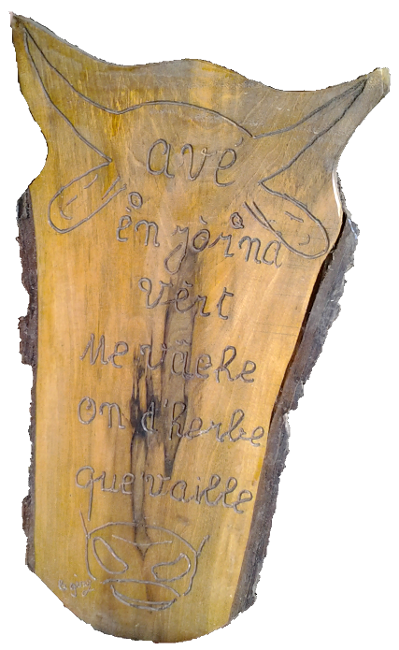 avé
ên jòrna
Vêrt
Me vâche
On d'herbe
que vaille